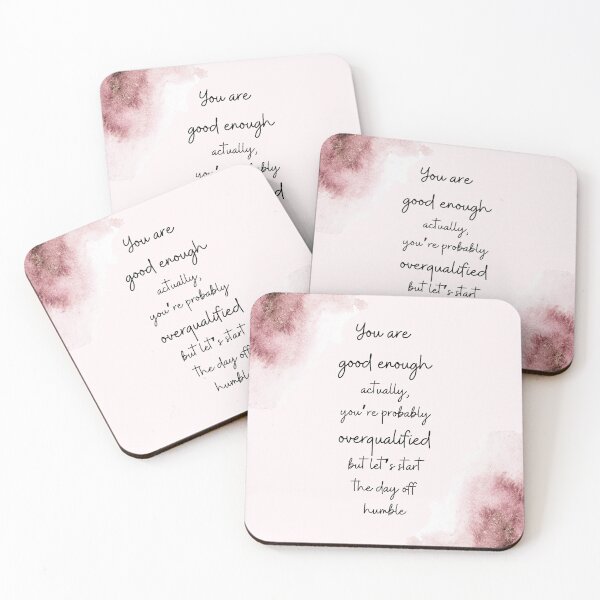 You are
good enough
actually,
you're probably
You are
good enough
actually,
you're probably
overqualified
but let's start
You are
good enough
actually,
you're probably
overqualified
but let's start
the day off
humble
You are
good enough
actually,
you're probably
overqualified
but let's start
the day off
humble